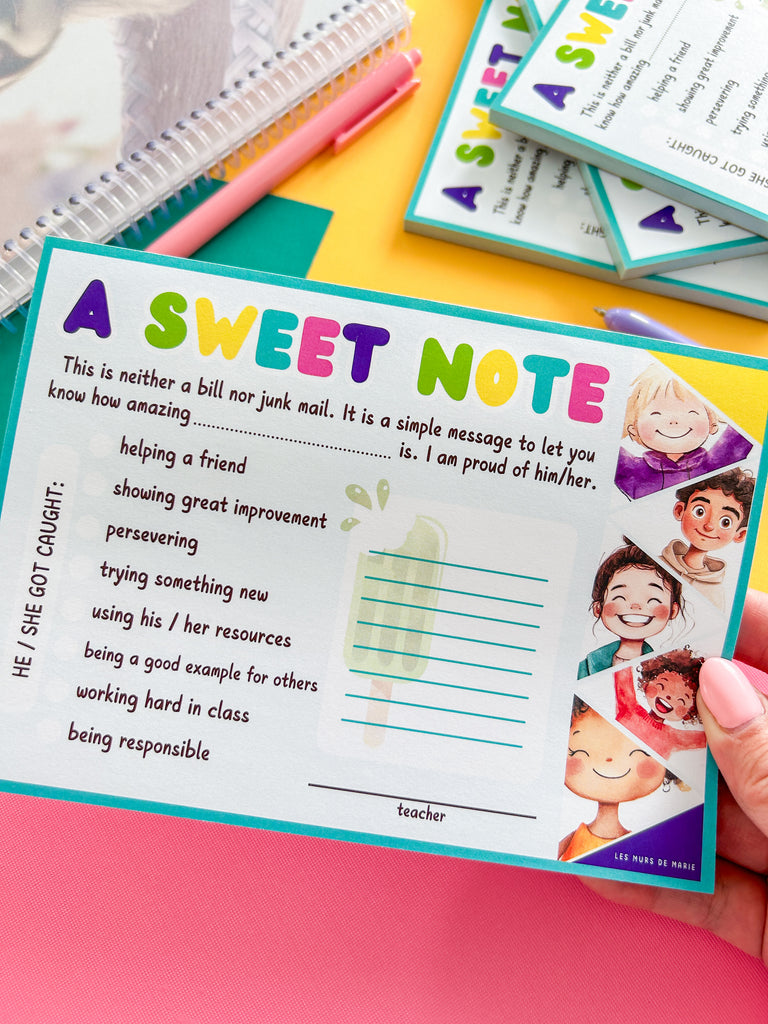 A SWEET NOTE
This is neither a bill nor junk mail. It is a simple message to let you
know how amazing ........................................ is. I am proud of him/her.
HE / SHE GOT CAUGHT:
helping a friend
showing great improvement
persevering
trying something new
using his / her resources
being a good example for others
working hard in class
being responsible
teacher
LES MURS DE MARIE
A SWE
This is neither a bill nor junk ma
know how amazing
helping a friend
showing great improvement
persevering
trying something
SHE GOT CAUGHT:
A SWEET N
This is neither a b
know how amazing
helping
A